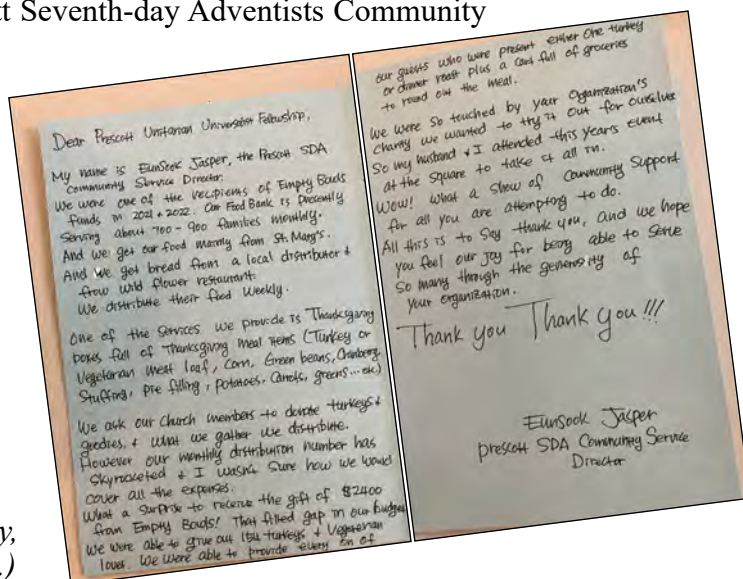 tt Seventh-day Adventists Community
Dear Prescott Unitarian Universalist Fellowship,
My name is EunSook Jasper, the Prescott SDA
Community Service Director.
We were one of the recipients of Empty Bowls
funds in 2021 + 2022. Our Food Bank is presently
serving about 700 - 900 families monthly.
And we get our food mainly from St. Mary's.
And we get bread from a local distributor &
from wild flower restaurant.
We distribute their food weekly.
One of the services we provide is Thanksgiving
boxes full of Thanksgiving meal items (Turkey or
Vegetarian meat loaf, corn, Green beans, Cranberry,
Stuffing, pie filling, potatoes, Carrots, greens...etc)
We ask our church members to donate turkeys &
goodies, & what we gather we distribute.
However our monthly distribution number has
skyrocketed & I wasn't sure how we would
cover all the expenses.
What a surprise to receive the gift of $2400
from Empty Bowls! That filled gap in our budget
We were able to give out turkeys & Vegetarian
loves. We were able to provide every on of
our guests who were present either one turkey
or dinner roast plus a card full of groceries
to round out the meal.
We were so touched by your Organization's
charity we wanted to try it out for ourselves
So my husband & I attended this year's event
at the square to take it all in.
Wow! What a show of Community Support
for all you are attempting to do.
All this is to say thank you, and we hope
you feel our joy for being able to serve
so many through the generosity of
your organization.
Thank you Thank you!!!
EunSook Jasper
prescott SDA Community Service
Director
y,
.)